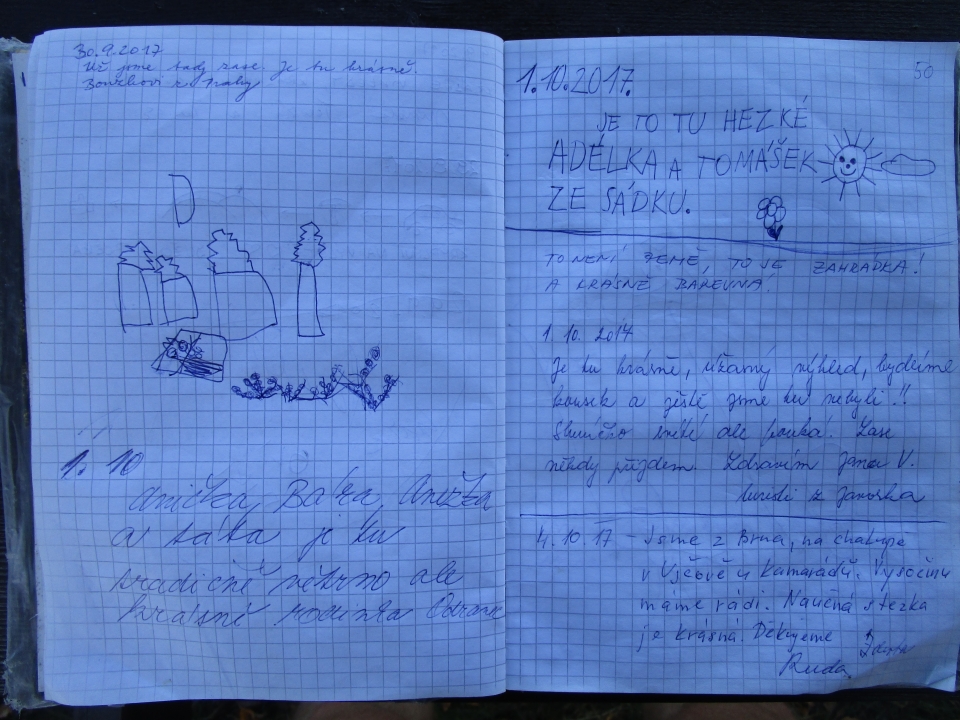 30.9.2017
Už jsme tady zase. Je tu krásně.
z Prahy
D
1. 10
Anička, Bára, Anežka
a táta je tu
tradičně větrno ale
krásně rodinka
50
1.10.2017.
JE TO TU HEZKÉ
ADÉLKA A TOMÁŠEK
ZE SÁDKU.
TO NENÍ ZEMĚ, TO JE ZAHRÁDKA!
A KRÁSNĚ BAREVNÁ.
1. 10. 2017
Je tu krásně, úžasný výhled, bydlíme
kousek a ještě jsme tu nebyli!!
Sluníčko svítí ale fouká. Zase
někdy přijdem. Zdravím Jana V.
turisti z
4.10.17 - Jsme z Brna, na chalupě
v u kamarádů. Vysočinu
máme rádi. Naučná stezka
je krásná. Děkujeme
Ruda